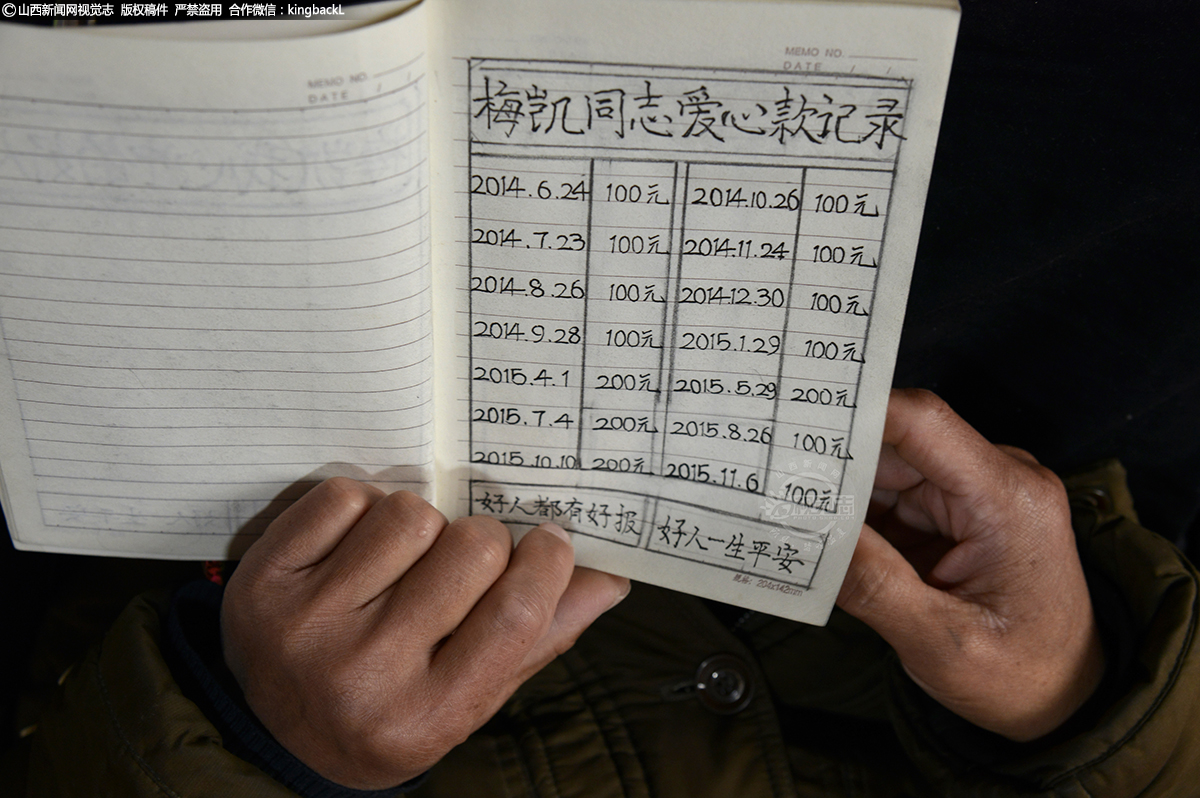 ©山西新闻网视觉志 版权稿件 严禁盗用 合作微信：kingbackL
MEMO NO.
DATE / /
MEMO NO.
DATE / /
梅凯同志爱心款记录
2014.6.24 100元 2014.10.26 100元
2014.7.23 100元 2014.11.24 100元
2014.8.26 100元 2014.12.30 100元
2014.9.28 100元 2015.1.29 100元
2015.4.1 200元 2015.5.29 200元
2015.7.4 200元 2015.8.26 100元
2015.10.10 200元 2015.11.6 100元
好人都有好报 好人一生平安